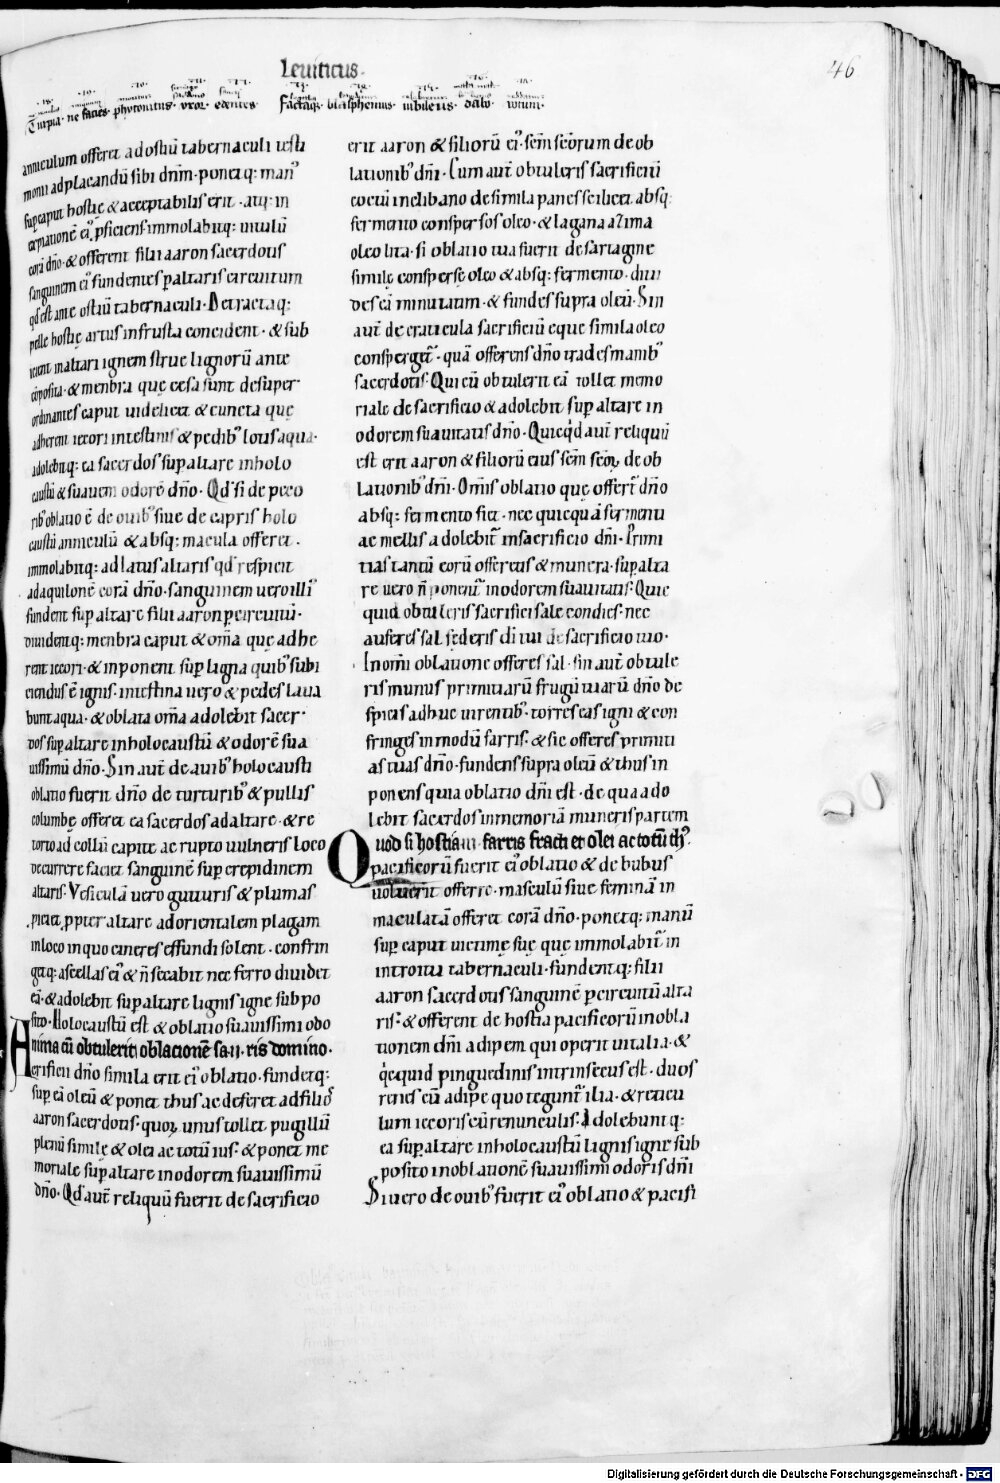 Leviticus.
46
Turpia. ne facies. phytonitus. uror. edentes. Factaq;. blasphemus. iubileus. dato. uotum.
anniculum offeret ad ostiū tabernaculi testi
monii ad placandū sibi dnm. ponetq: man᾽
sup caput hostię & acceptabilis erit. atq: in
expiationē ei᾽ pficiens immolabitq: uitulū
corā dno. & offerent filii aaron sacerdotis
sanguinem ei᾽ fundentes p altaris circuitum
qd est ante ostiū tabernaculi. Detractaq:
pelle hostię artus in frusta concident. & sub
icient in altari ignem strue lignorū ante
cōposita. & menbra quę cęsa sunt desuper
ordinantes caput uidelicet & cuncta quę
adherent iecori intestinis & pedib᾽ lotis aqua.
adolebitq: ea sacerdos sup altare in holo
caustū & suauem odorē dno. Qd si de peco
rib᾽ oblatio ē de ouib᾽ siue de capris holo
caustū anniculū & absq: macula offeret.
immolabitq: ad latus altaris qd respicit
ad aquilonē corā dno. sanguinem uero illi᾽
fundent sup altare filii aaron p circuitū.
diuidentq: menbra caput & oma quę adhe
rent iecori. & inponent sup ligna quib᾽ subi
ciendus ē ignis. intestina uero & pedes laua
bunt aqua. & oblata oma adolebit sacer
dos sup altare in holocaustū & odorē sua
uissimū dno. Sin aut de auib᾽ holocausti
oblatio fuerit dno de turturib᾽ & pullis
columbę offeret ea sacerdos ad altare. & re
torto ad collū capite ac rupto uulneris loco
decurrere faciet sanguinē sup crepidinem
altaris. Vesiculā uero gutturis & plumas
piciet ppter altare ad orientalem plagam
in loco in quo cineres effundi solent. confrin
getq: ascellas ei᾽ & n secabit nec ferro diuidet
eā. & adolebit sup altare lignis igne subpo
sito. Holocaustū est & oblatio suauissimi odo
Anima cū obtulerit oblacionē sa ris domino.
crificii dno simila erit ei᾽ oblatio. fundetq:
sup eā oleū & ponet thus ac deferet ad filios
aaron sacerdotis. quoꝝ unus tollet pugillū
plenū similę & olei ac totū tus. & ponet me
moriale sup altare in odorem suauissimū
dno. Qd aut reliquū fuerit de sacrificio
erit aaron & filiorū ei᾽. scm scorum de ob
lationib᾽ dni. Cum aut obtuleris sacrificiū
coctū in clibano de simila panes scilicet absq:
fermento conspersos oleo. & lagana azima
oleo lita. si oblatio tua fuerit de sartagine
similę conspersę oleo & absq: fermento. diui
des eā minutatim. & fundes supra oleū. Sin
aut de craticula sacrificiū eque simila oleo
conspergetr. quā offerens dno trades manib᾽
sacerdotis. Qui cū obtulerit eā tollet memo
riale de sacrificio & adolebit sup altare in
odorem suauitatis dno. Quicqd aut reliquū
est erit aaron & filiorū eius scm scoꝝ de ob
lationib᾽ dni. Omis oblatio que offertr dno
absq: fermento fiet. nec quicquā fermenti
ac mellis adolebitr in sacrificio dni. Primi
tias tantū eorū offeretis & munera. sup alta
re uero n ponentr in odorem suauitatis. Quic
quid obtuleris sacrificii sale condies. nec
auferes sal foederis di tui de sacrificio tuo.
In omi oblatione offeres sal. sin aut obtule
ris munus primitiarū frugū tuarū dno de
spicis adhuc uirentib᾽. torres eas igni & con
fringes in modū farris. & sic offeres primiti
as tuas dno. fundens supra oleū & thus in
ponens quia oblatio dni est. de qua ado
lebit sacerdos in memoriā muneris partem
Quod si hostiam farris fracti et olei ac totū th᾽.
pacificorū fuerit ei᾽ oblatio & de bubus
uoluerit offerre. masculū siue feminā in
maculatā offeret corā dno. ponetq: manū
sup caput uictimę suę quę immolabitr in
introitu tabernaculi. fundentq: filii
aaron sacerdotis sanguinē p circuitū alta
ris. & offerent de hostia pacificorū in obla
tionem dni adipem qui operit uitalia. &
qcquid pinguedinis intrinsecus est. duos
renes cū adipe quo teguntr ilia. & reticu
lum iecoris cū renunculis. Adolebuntq:
ea sup altare in holocaustū lignis igne sub
posito in oblationē suauissimi odoris dni
Si uero de ouib᾽ fuerit ei᾽ oblatio & pacifi
Digitalisierung gefördert durch die Deutsche Forschungsgemeinschaft - DFG